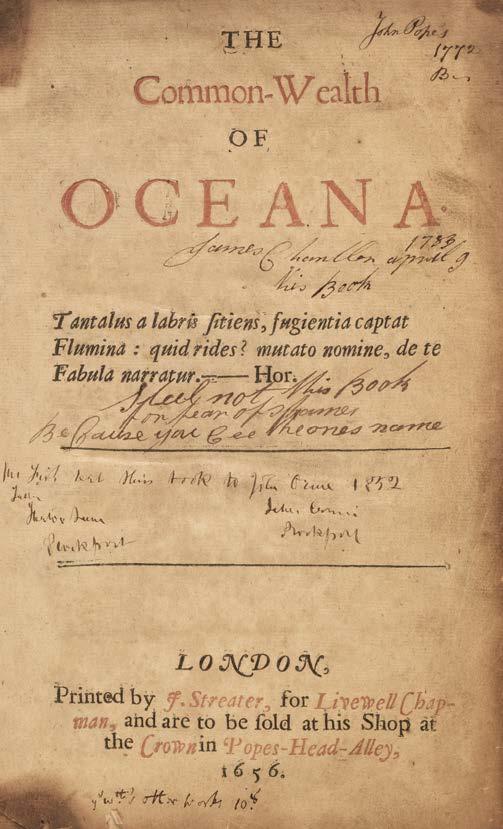 THE
John Pope's
1772
Common-Wealth
OF
OCEANA
1783
James Chanllen april 9
his Book
Tantalus a labris ſitiens, fugientia captat
Flumina : quid rides? mutato nomine, de te
Fabula narratur.—— Hor.
Steel not this Book
for fear of shames
Because you Cee the ones name
Mr
this book to John 1852
John
Stockport
Stockport
LONDON,
Printed by J. Streater, for Livewell Chap-
man, and are to be ſold at his Shop at
the Crown in Popes-Head-Alley,
1656.
other works 10s